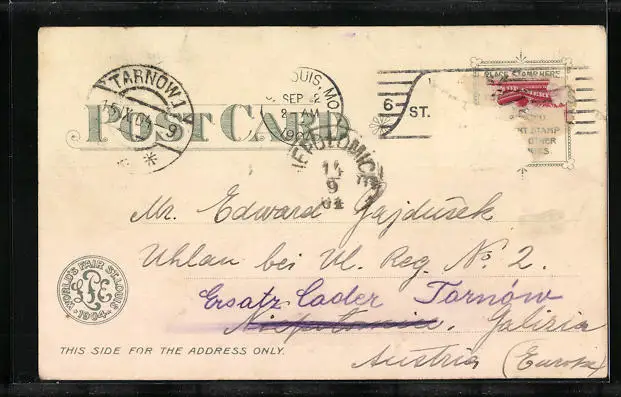 TARNOW 1
15/9 04
9
ST. LOUIS, MO.
SEP 2
2 AM
1904
6
ST.
PLACE STAMP HERE
STAMP
OTHER
POST CARD
NIEPOLOMICE
14
9
04
Mr. Edward Gajdušek
Uhlan bei Ul. Reg. No. 2.
Ersatz Cader Tarnów
Niepołomice, Galizia
WORLD'S FAIR ST. LOUIS
1904
THIS SIDE FOR THE ADDRESS ONLY.
Austria (Europe)